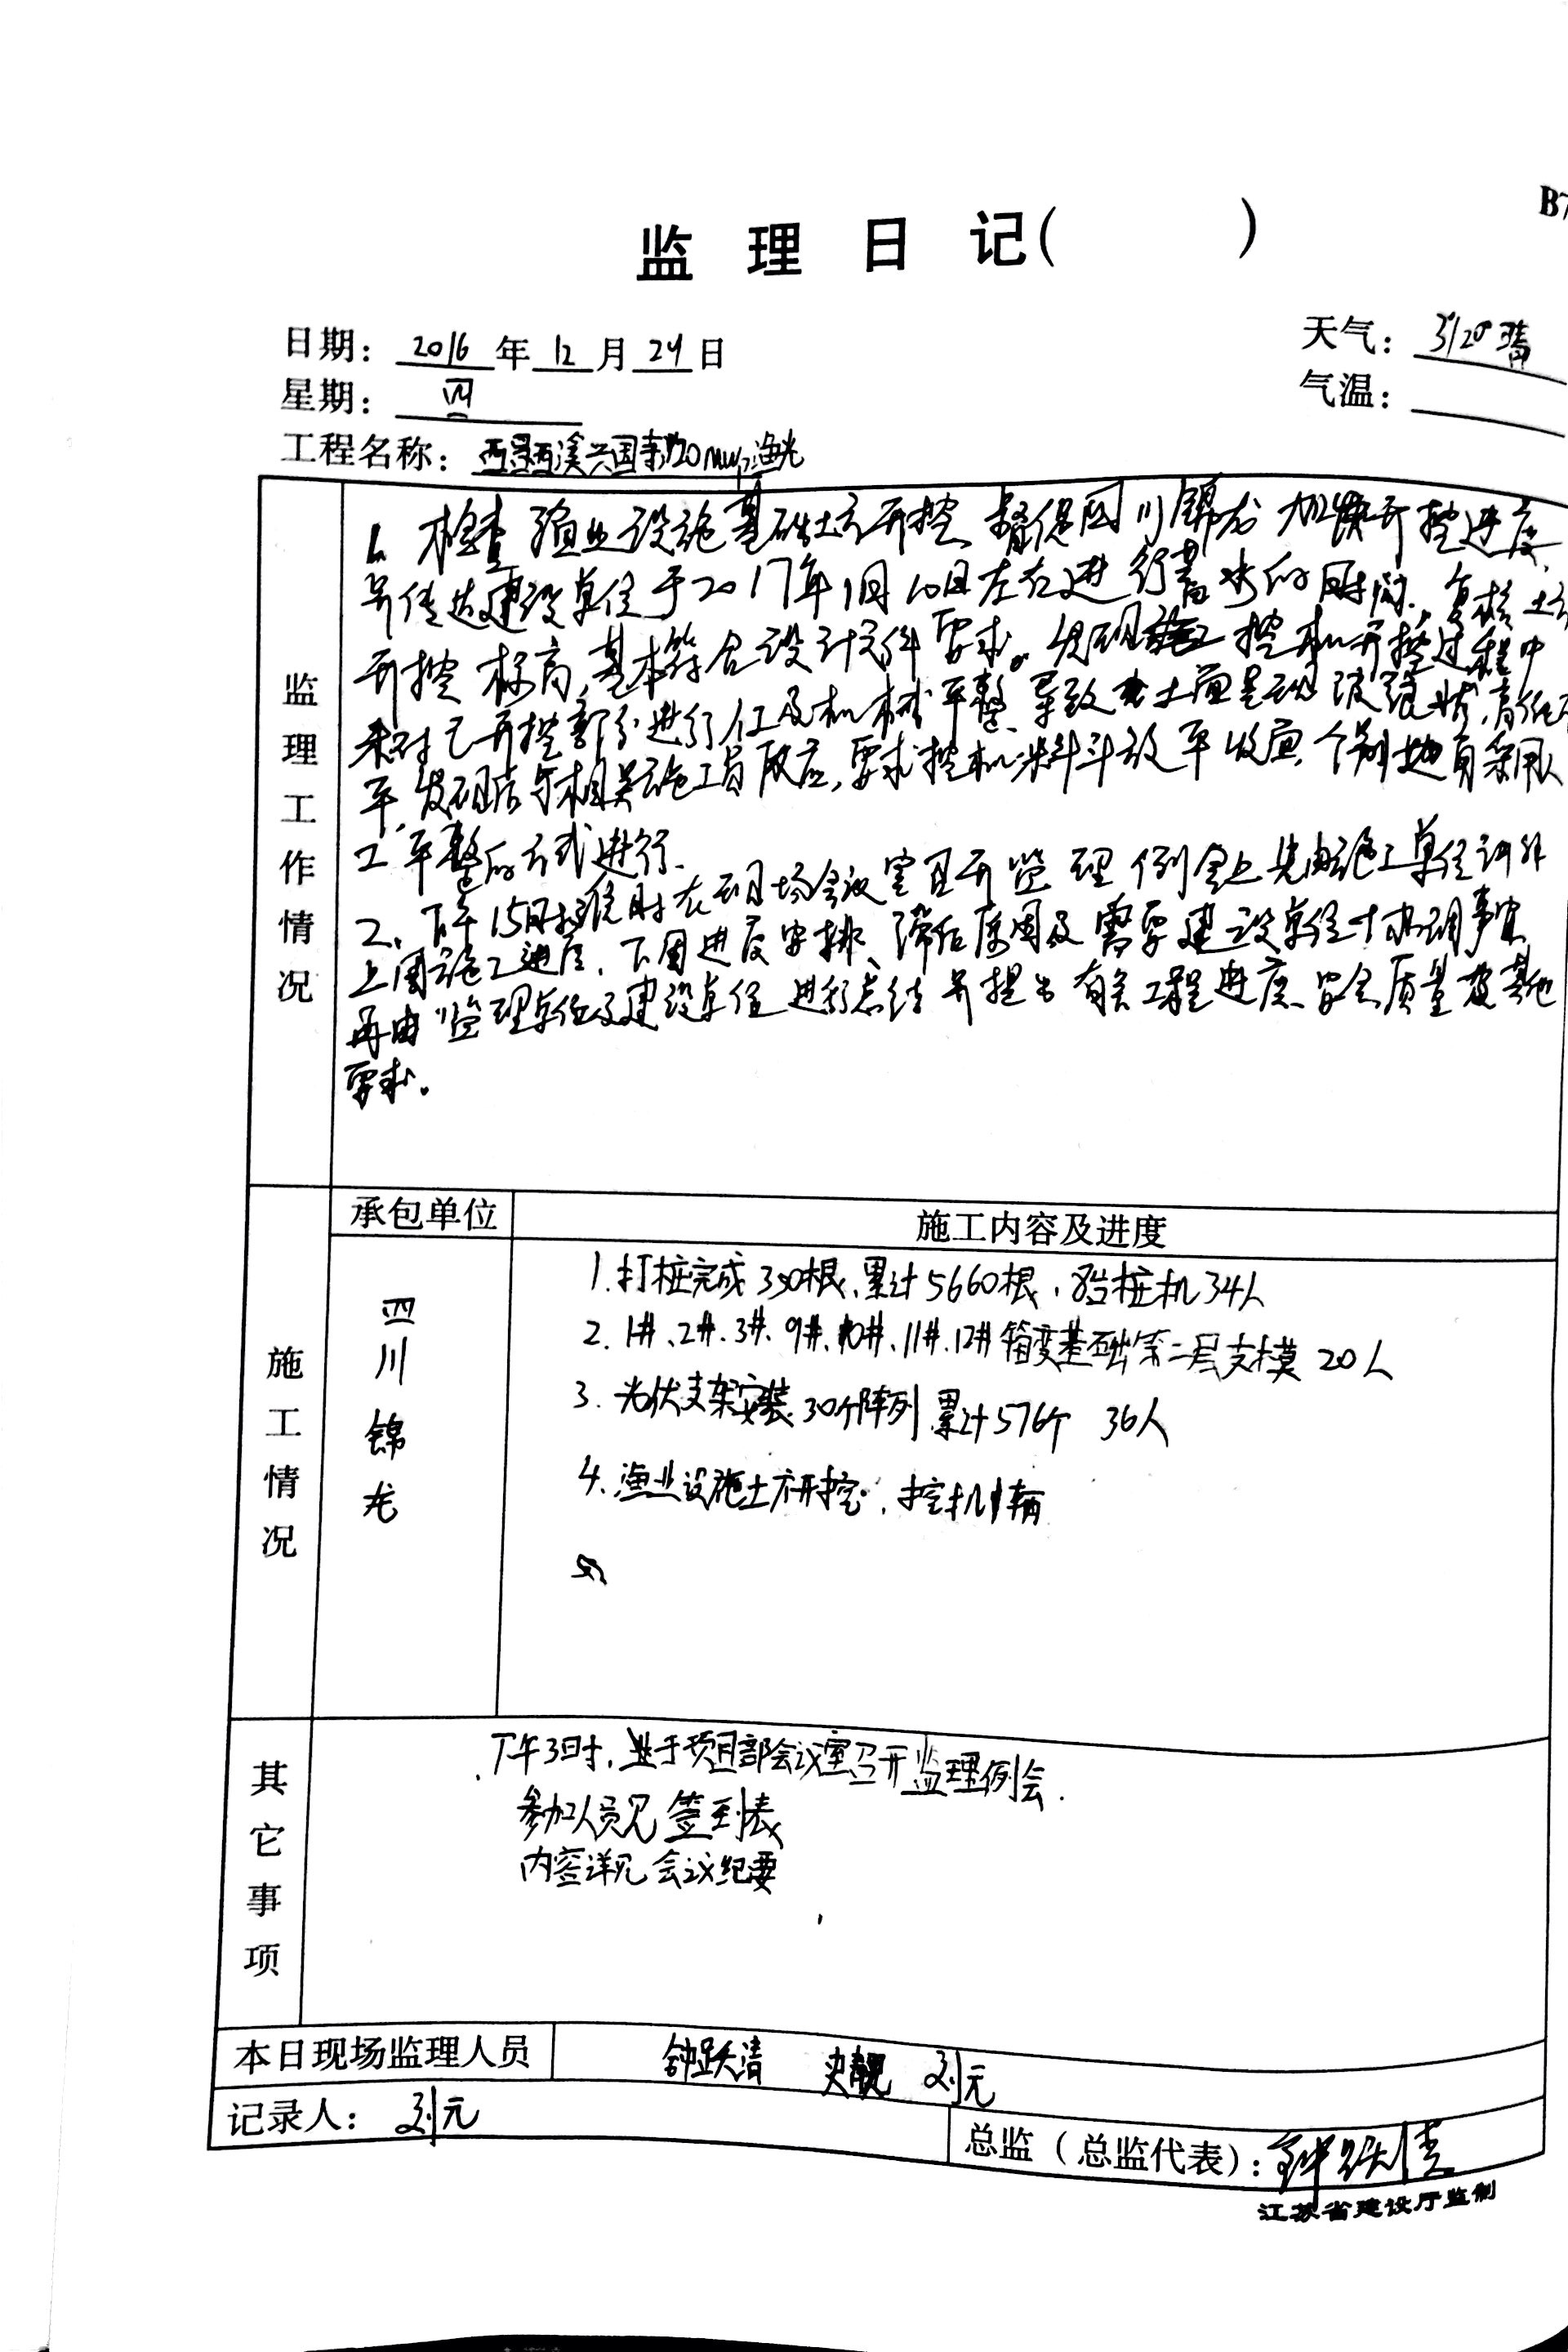 B7
监 理 日 记( )
日期: 2016 年 12 月 29 日
天气: 3°/20° 晴
星期: 四
气温:
工程名称: 20MWp渔光
监理工作情况
1、检查渔业设施基础土方开挖、督促四川锦龙加快开挖进度,
并传达建设单位于2017年1月10日左右进行蓄水的时间、复核土方
开挖标高,基本符合设计文件要求。发现施工挖机开挖过程中
未对已开挖部分进行 及机械平整、导致 土面呈现波浪状,高低不
平,发现后与相关施工员 ,要求挖机料斗放平收面 个别地 采用人
工平整的方式进行、
2、下午15时 在现场会议室召开监理例会上先由施工单位讲解
上周施工进度、下周进度安排、滞后原因及需要建设单位协调事宜
再由监理单位及建设单位进行总结并提出有关工程进度、安全质量及其他
要求。
施工情况
承包单位
施工内容及进度
四川锦龙
1.打桩完成350根、累计5660根, 桩机34人
2.1#、2#、3#、9#、10#、11#、12#箱变基础第二层支模 20人
3.光伏支架安装 30个阵列 累计576个 36人
4.渔业设施土方开挖、挖机 辆
其它事项
下午3时, 于项目部会议室召开监理例会.
参加人员见签到表
内容详见会议纪要
本日现场监理人员 钟跃清 史靓 刘元
记录人: 刘元
总监(总监代表): 钟跃清
江苏省建设厅监制